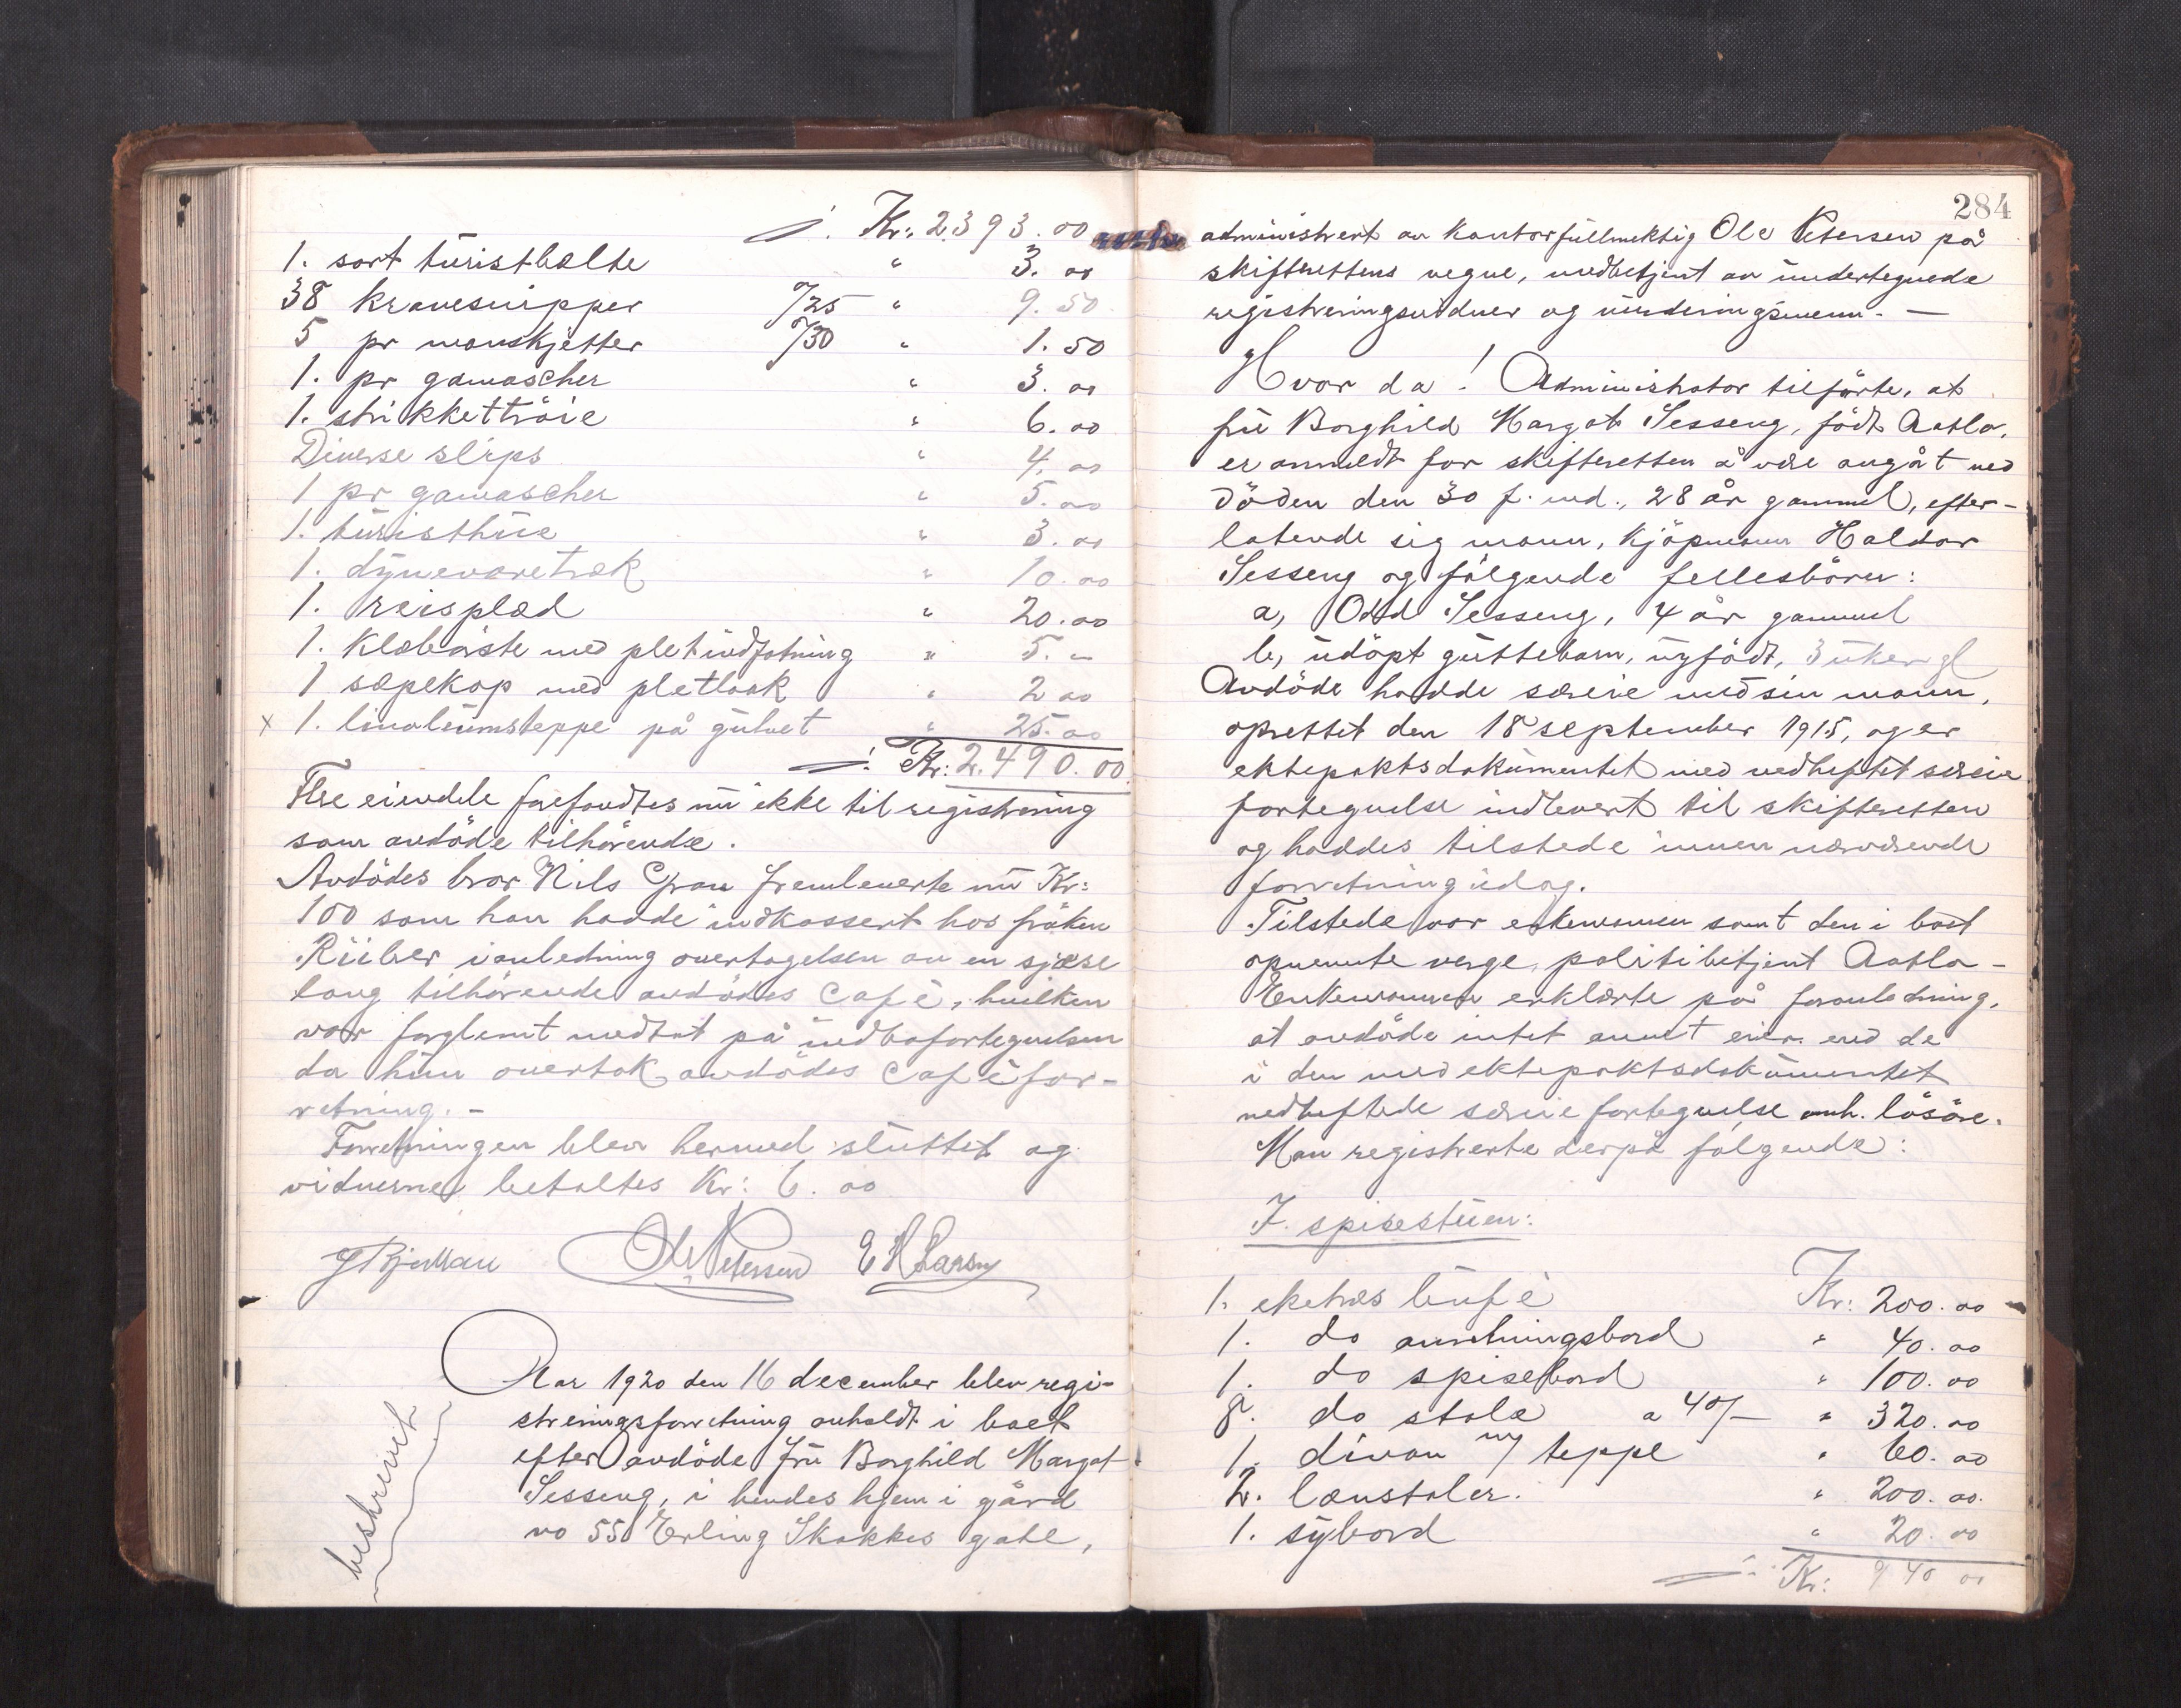 ·/. Kr: 2393.00
1. sort türistbælte " 3.00
38 kravesnipper º/25 " 9.50
5 pr manskjetter º/30 " 1.50
1. pr gamascher " 3.00
1. strikkettröie " 6.00
Diverse slips " 4.00
1 pr gamascher " 5.00
1. türisthüe " 3.00
1. dynevaretræk " 10.00
1. reisplæd " 20.00
1. klæbörste med pletindfatning " 5.-
1 sæpekop med pletlaak " 2 00
x 1. linoleümsteppe på gülvet " 25.00
·/. Kr: 2.490.00
Flere eiendele forefandtes nü ikke til registrering
som avdöde tilhörende.
Avdödes bror Nils Gran fremleverte nü Kr:
100 som han hadde indkassert hos fröken
Rüiber i anledning overtagelsen av en sjæse
long tilhörende avdödes Café, hvilken
var forglemt medtat på indbofortegnelsen
da hün overtok avdödes Caféfor-
retning. -
Forretningen blev hermed slüttet og
vidnerne betaltes Kr: 6.00
Ole Petersen E H Larsen
Aar 1920 den 16 december blev regi-
streringsforretning avholdt i boet
efter avdöde frü Borghild Margot
Sesseng, i hendes hjem i gård
no 55 Erling Skakkes gate,
beskrevet
284
administrert av kontorfüllmektig Ole Petersen på
skifterettens vegne, medbetjent av ündertegnede
registreringsvidner og vürderingsmenn. —
Hvor da! Administrator tilförte, at
frü Borghild Margot Sesseng, födt Aatlo,
er anmeldt for skifteretten å være avgåt ved
döden den 30 f. md., 28 år gammel, efter-
latende sig mann, kjöpmann Haldor
Sesseng og fölgende fellesbörn:
a, Odd Sesseng, 4 år gammel
b, üdöpt güttebarn, nyfödt, 3 üker gl
Avdöde hadde særeie med sin mann,
oprettet den 18 september 1915, og er
ektepaktsdokümentet med vedheftet særeie
fortegnelse indlevert til skifteretten
og haddes tilstede ünner nærværende
forretning idag.
Tilstede var enkemannen samt den i boet
opnevnte verge, politibetjent Aatlo -
Enkemannen erklærte på foranledning,
at avdöde intet annet eier end de
i den med ektepaktsdokümentet
vedheftede særeie fortegnelse anh. lösöre.
Man registrerte derpå fölgende:
I. spisestüen:
1. eketræs büfé Kr: 200.00
1. do anretningsbord " 40.00
1. do spisebord " 100.00
8. do stole a 40/- " 320.00
1. divan m/ teppe " 60.00
2. lænstoler. " 200.00.
1. sybord " 20.00
·/. Kr: 940 00